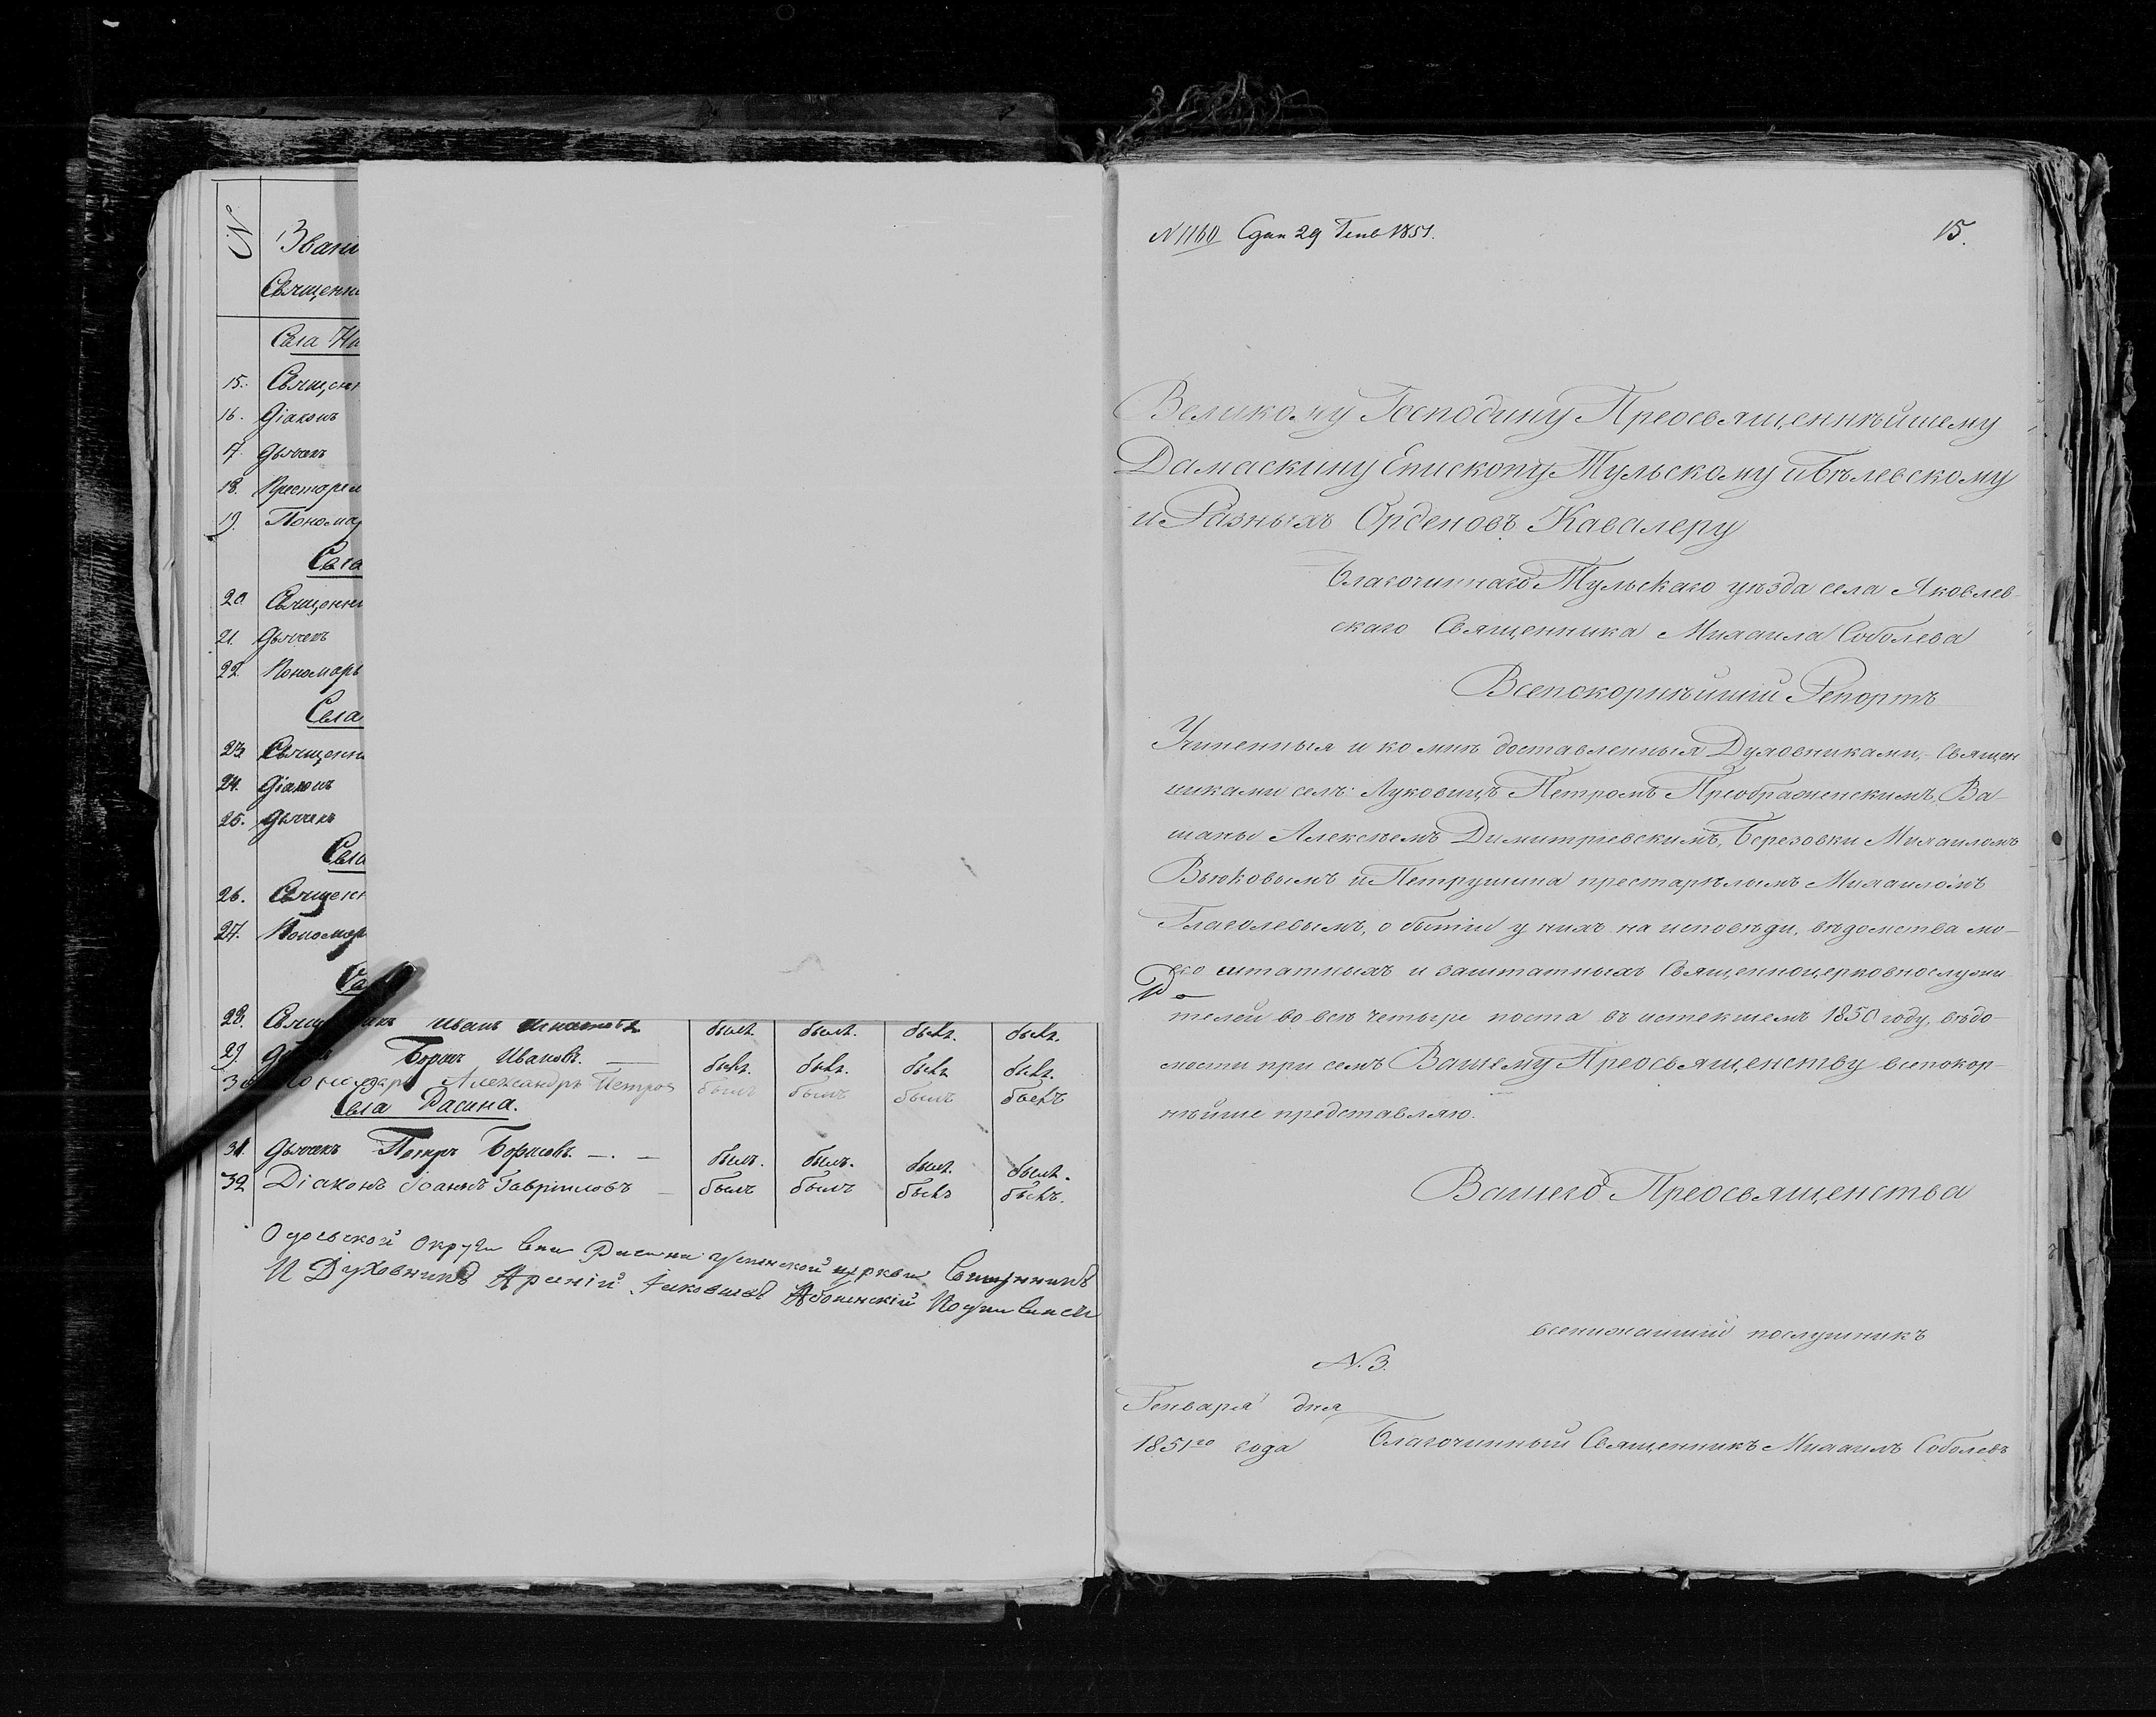 N
Звани
Священни
Села На
15. Священ
16. Діаконъ
17. Дьячекъ
18. Престарел
19. Понома
Села
20 Священни
21. Дьячекъ
22. Пономарь
Села
23. Священни
24. Діаконъ
25. Дьячекъ
Села
26. Священ
27. Пономар
28. Иванъ былъ. былъ. былъ. былъ.
29. Борисъ Ивановъ. — былъ. былъ. былъ былъ.
Александръ Петров былъ былъ былъ былъ
Села Расина.
31. Дьячекъ Петръ Борисовъ. — . — былъ. былъ. былъ. былъ.
32 Діаконъ Іоаннъ Гавриловъ — былъ былъ былъ былъ.
Одоевской округи Села Расина Успенской церкви Священникъ
И Духовникъ Арсеній
N 1160 Сдан 29 Генв 1851.
15.
Великому Господину Преосвященнѣйшему
Дамаскину Епископу Тульскому и Бѣлевскому
и Разныхъ Орденовъ Кавалеру
Благочиннаго Тульскаго уѣзда села Яковлев-
скаго Священника Михаила Соболева
Всепокорнѣйшій Репортъ
Учиненныя и ко мнѣ доставленныя Духовниками, – Священ
никами селъ: Луковицъ Петромъ Преображенскимъ, Ва-
шаны Алексѣемъ Димитріевскимъ, Березовки Михаиломъ
Вьюковымъ и Петрушина престарѣлымъ Михаиломъ
Глаголевымъ, о бытіи у нихъ на исповѣди, вѣдомства мо-
его штатныхъ и заштатныхъ Священноцерковнослужи-
телей во всѣ четыре поста въ истекшемъ 1850 году, вѣдо-
мости при семъ Вашему Преосвященству всепокор-
нѣйше представляю.
Вашего Преосвященства
всенижайшій послушникъ
N. 3.
Генваря дня
1851го года Благочинный Священникъ Михаилъ Соболевъ